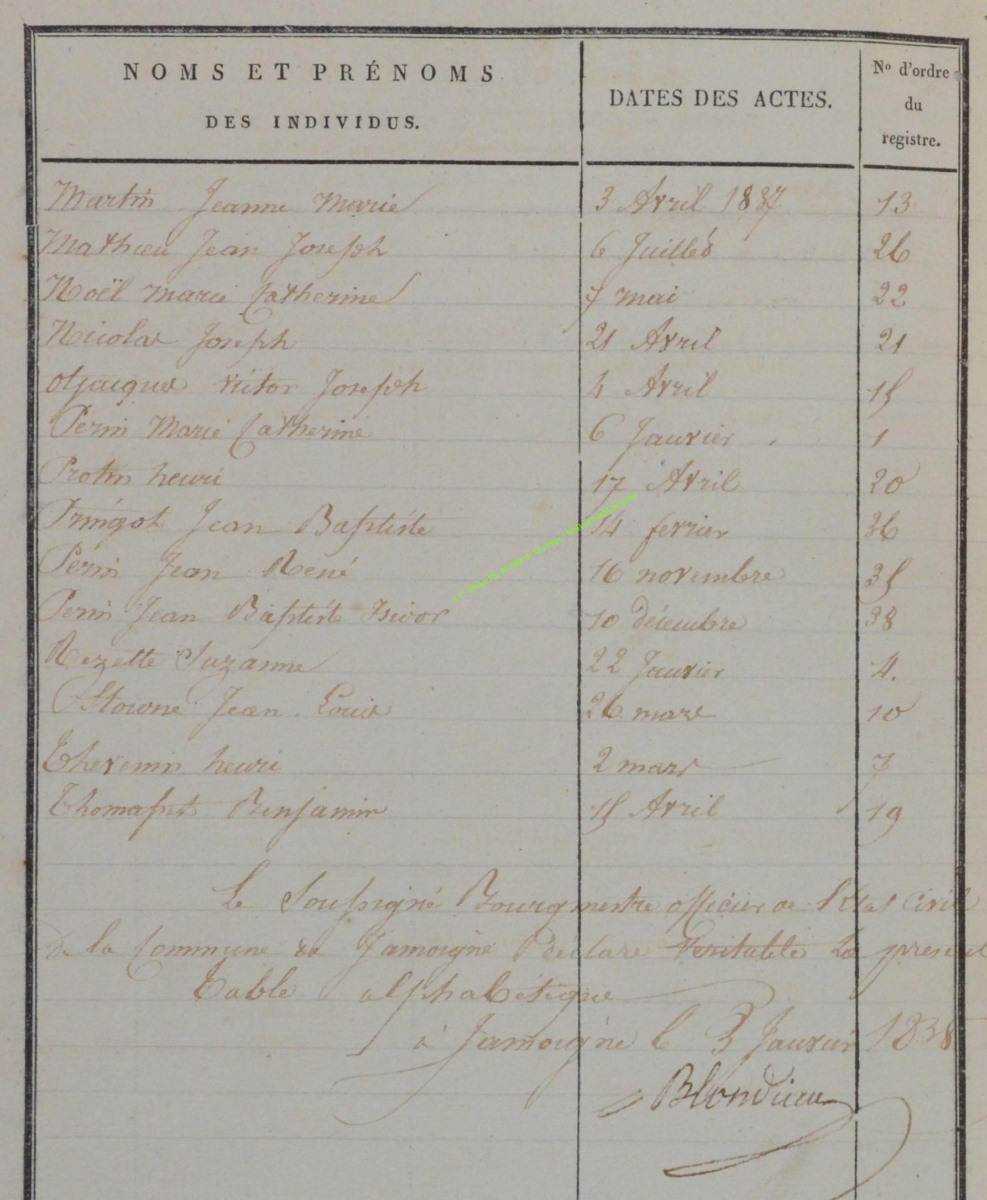 NOMS ET PRÉNOMS
DES INDIVIDUS.
DATES DES ACTES.
Nº d'ordre
du
registre.
Martin Jeanne Marie 3 Avril 1837 13
Mathieu Jean Joseph 6 Juillet 26
Noël Marie Catherine 7 mai 22
Nicolas Joseph 21 Avril 21
victor Joseph 4 Avril 15
Perin Marie Catherine 6 Janvier 1
Protin henri 17 Avril 20
Pringot Jean Baptiste 14 fevrier 36
Périn Jean René 16 novembre 35
Perin Jean Baptiste Isidor 10 décembre 38
Rezette Suzanne 22 Janvier 4.
Jean Louis 26 mars 10
Thevenin henri 2 mars 7
Benjamin 15 Avril 19
Le Soussigné Bourgmestre officier de l'Etat civil
De la Commune de Jamoigne Déclare Veritable La present
Table alphabétique
à Jamoigne le 3 Janvier 1838
Blondiau